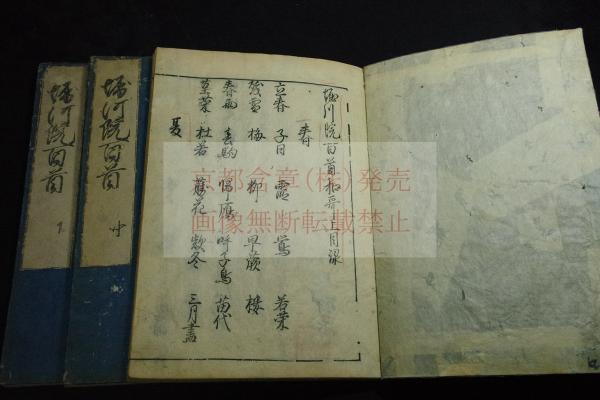 堀川院百首和哥上目録
春
立春 子日 霞 鶯 若菜
残雪 梅 柳 早蕨 櫻
春雨 春駒 帰雁 呼子鳥 苗代
菫菜 杜若 藤花 款冬 三月盡
夏
堀河院百首 中
堀河院百首 下
京都合章(株)発売
画像無断転載禁止